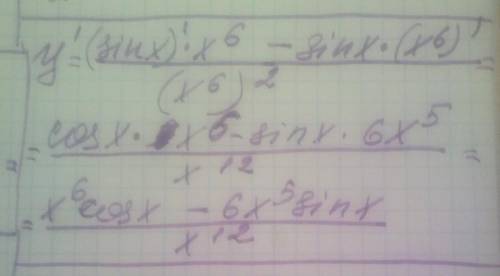 y' = ((sinx)' · x⁶ − sinx · (x⁶)') / (x⁶)² =
= (cosx · x⁶ − sinx · 6x⁵) / x¹² =
= (x⁶cosx − 6x⁵sinx) / x¹²